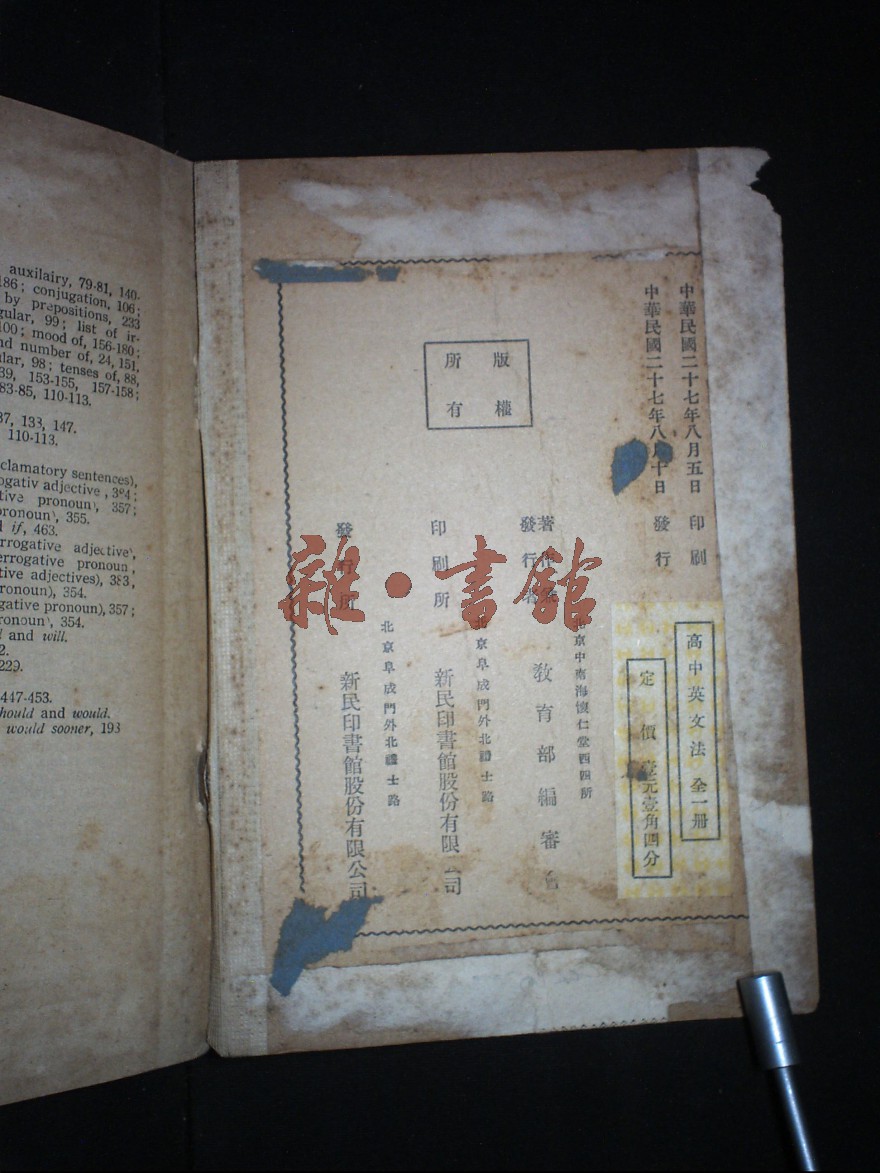 auxilairy, 79-81, 140-
186; conjugation, 106;
by prepositions, 233
gular, 99; list of ir-
100; mood of, 156-180;
nd number of, 24, 151,
ular, 98; tenses of, 88,
39, 153-155, 157-158;
83-85, 110-113.
37, 133, 147.
110-113.
clamatory sentences),
rogativ adjective, 384;
tive pronoun), 357;
pronoun), 355.
d if, 463.
errogative adjective),
errogative pronoun,
tive adjectives), 383,
pronoun), 354.
gative pronoun), 357;
pronoun), 354.
d and will.
2.
229.
447-453.
hould and would.
would sooner, 193
中華民國二十七年八月五日 印刷
中華民國二十七年八月十日 發行
高中英文法 全一冊
定價 壹元壹角四分
版權
所有
北京中南海懷仁堂西四所
著作兼
發行者
教育部編審
北京阜成門外北禮士路
印刷所
新民印書館股份有限公司
北京阜成門外北禮士路
發行所
新民印書館股份有限公司
雜·書館